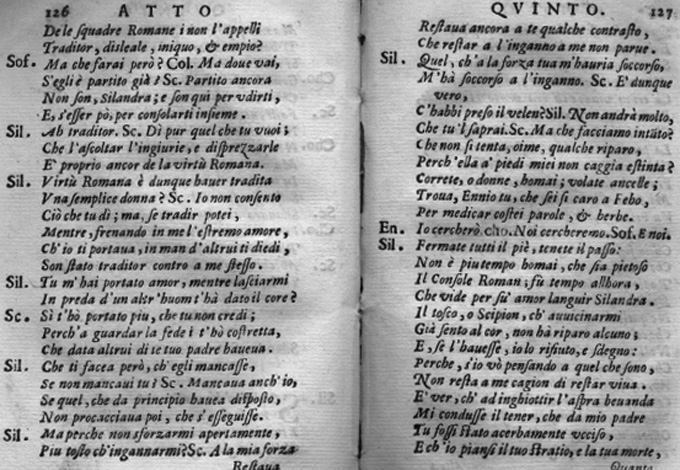 126 ATTO
De le squadre Romane i non l'appelli
Traditor, disleale, iniquo, & empio?
Sof. Ma che farai però? Col. Ma doue vai,
S'egli è partito già? Sc. Partito ancora
Non son, Silandra; e son qui per vdirti,
E, s'esser pò, per consolarti insieme.
Sil. Ah traditor. Sc. Dì pur quel che tu vuoi;
Che l'ascoltar l'ingiurie, e disprezzarle
E' proprio ancor de la virtù Romana.
Sil. Virtù Romana è dunque hauer tradita
Vna semplice donna? Sc. Io non consento
Ciò che tu dì; ma, se tradir potei,
Mentre, frenando in me l'estremo amore,
Ch'io ti portaua, in man d'altrui ti diedi,
Son stato traditor contro a me stesso.
Sil. Tu m'hai portato amor, mentre lasciarmi
In preda d'un altr'huom t'hà dato il core?
Sc. Sì t'hò portato piu, che tu non credi;
Perch'a guardar la fede i t'hò costretta,
Che data altrui di te tuo padre haueua.
Sil. Che ti facea però, ch'egli mancasse,
Se non mancaui tu? Sc. Mancaua anch'io,
Se quel, che da principio hauea disposto,
Non procacciaua poi, che s'esseguisse.
Sil. Ma perche non sforzarmi apertamente,
Piu tosto ch'ingannarmi? Sc. A la mia forza
Restaua
QVINTO. 127
Restaua ancora a te qualche contrasto,
Che restar a l'inganno a me non parue.
Sil. Quel, ch'a la forza tua m'hauria soccorso,
M'hà soccorso a l'inganno. Sc. E' dunque
vero,
C'habbi preso il velen? Sil. Non andrà molto,
Che tu'l saprai. Sc. Ma che facciamo intãto?
Che non si tenta, oime, qualche riparo,
Perch'ella a' piedi miei non caggia estinta?
Correte, o donne, homai; volate ancelle;
Troua, Ennio tu, che sei sì caro a Febo,
Per medicar costei parole, & herbe.
En. Io cercherò. cho. Noi cercheremo. Sof. E noi.
Sil. Fermate tutti il piè, tenete il passo:
Non è piu tempo homai, che sia pietoso
Il Console Roman; fù tempo allhora,
Che vide per su' amor languir Silandra.
Il tosco, o Scipion, ch'auuicinarmi
Già sento al cor, non hà riparo alcuno;
E, se l'hauesse, io lo rifiuto, e sdegno:
Perche, s'io vò pensando a quel che sono,
Non resta a me cagion di restar viua.
E' ver, ch'ad inghiottir l'aspra beuanda
Mi condusse il temer, che da mio padre
Tu fossi stato acerbamente vcciso,
E ch'io piansi il tuo stratio, e la tua morte,
Quanto